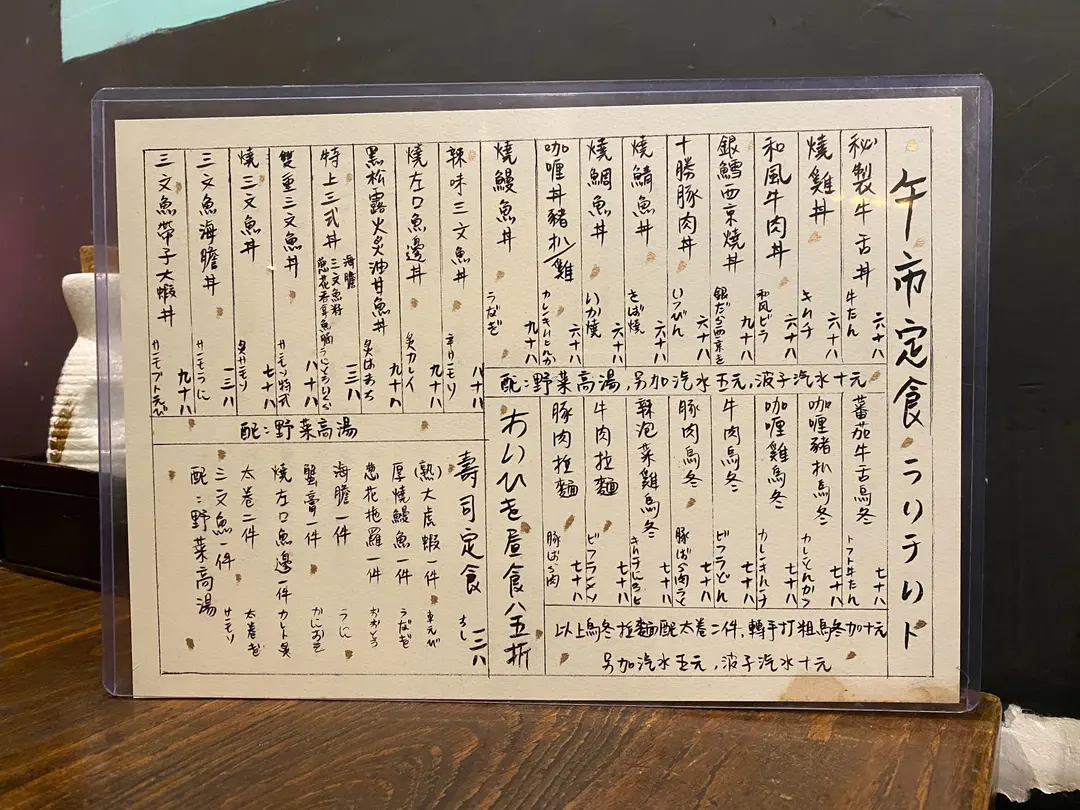 午市定食 うリテリト
秘製牛舌丼 牛たん 六十八
燒雞丼 きんチ 六十八
和風牛肉丼 和風ビラ 六十八
銀鱈西京燒丼 銀だら西京き 九十八
十勝豚肉丼 いつびん 六十八
燒鯖魚丼 さば燒 六十八
燒鯛魚丼 いか燒 六十八
咖喱丼豬扒/雞 六十八
燒鰻魚丼 うなぎ 九十八
配:野菜高湯,另加汽水五元,波子汽水十元
蕃茄牛舌烏冬 トフト牛たん 七十八
咖喱豬扒烏冬 カレとんかつ 七十八
咖喱雞烏冬 カレーきんチ 七十八
牛肉烏冬 ビフうどん 七十八
豚肉烏冬 豚ばら肉うと 七十八
辣泡菜雞烏冬 七十八
牛肉拉麵 七十八
豚肉拉麵 豚ばら肉 七十八
以上烏冬拉麵配太卷二件,轉手打粗烏冬加十元
另加汽水五元,波子汽水十元
わりひき屋食八五折
辣味三文魚丼 辛サモリ 八十八
燒左口魚邊丼 炙カレイ 九十八
黑松露火炙油甘魚丼 炙はまち 九十八
特上三式丼 海膽 三文魚籽 一三八
雙重三文魚丼 サーモン特式 八十八
燒三文魚丼 炙サモリ 七十八
三文魚海膽丼 サンモラに 一三八
三文魚帶子大蝦丼 九十八
配:野菜高湯
壽司定食 すし 一三八
(熟)大虎蝦一件 車えび
厚燒鰻魚一件 うなぎ
蔥花拖羅一件 おおとろ
海膽一件 うに
蟹膏一件
燒左口魚邊一件
太卷二件 太卷き
三文魚一件 サモリ
配:野菜高湯